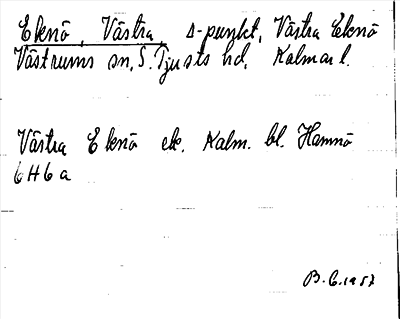 Eknö, Västra, s-punkt, Västra Eknö
Västrums sn, S. Tjusts hd, Kalmar l.
Västra Eknö ek. Kalm. bl. Hamnö
6 H 6 a
B. C. 1957